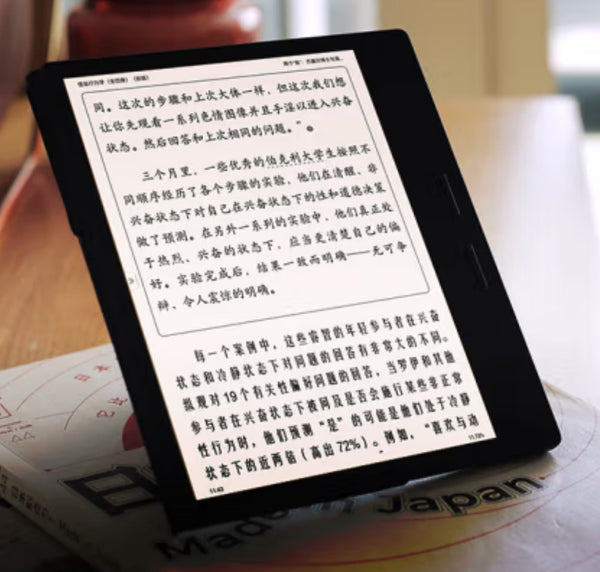 怪诞行为学（全四册）（新版）
同。这次的步骤和上次大体一样，但这次我们想
让你先观看一系列色情图像并且手淫以进入兴奋
状态。然后回答和上次相同的问题。”
三个月里，一些优秀的伯克利大学生按照不
同顺序经历了各个步骤的实验，他们在清醒、非
兴奋状态下对自己在兴奋状态下的性和道德决策
做了预测。在另外一系列的实验中，他们真正处
于热烈、兴奋的状态下，应当更清楚自己的偏
好。实验完成后，结果一致而明确——无可争
辩、令人震惊的明确。
每一个案例中，这些睿智的年轻参与者在兴奋
状态和冷静状态下对问题的回答有非常大的不同。
纵观对19个有关性偏好问题的回答，当罗伊和其他
参与者在兴奋状态下被问及是否会施行某些非正常
性行为时，他们预测“是”的可能是他们处于冷静
状态下的近两倍（高出72%）。例如，“喜欢与动
11:43
11.72%
日本
Made in Japan